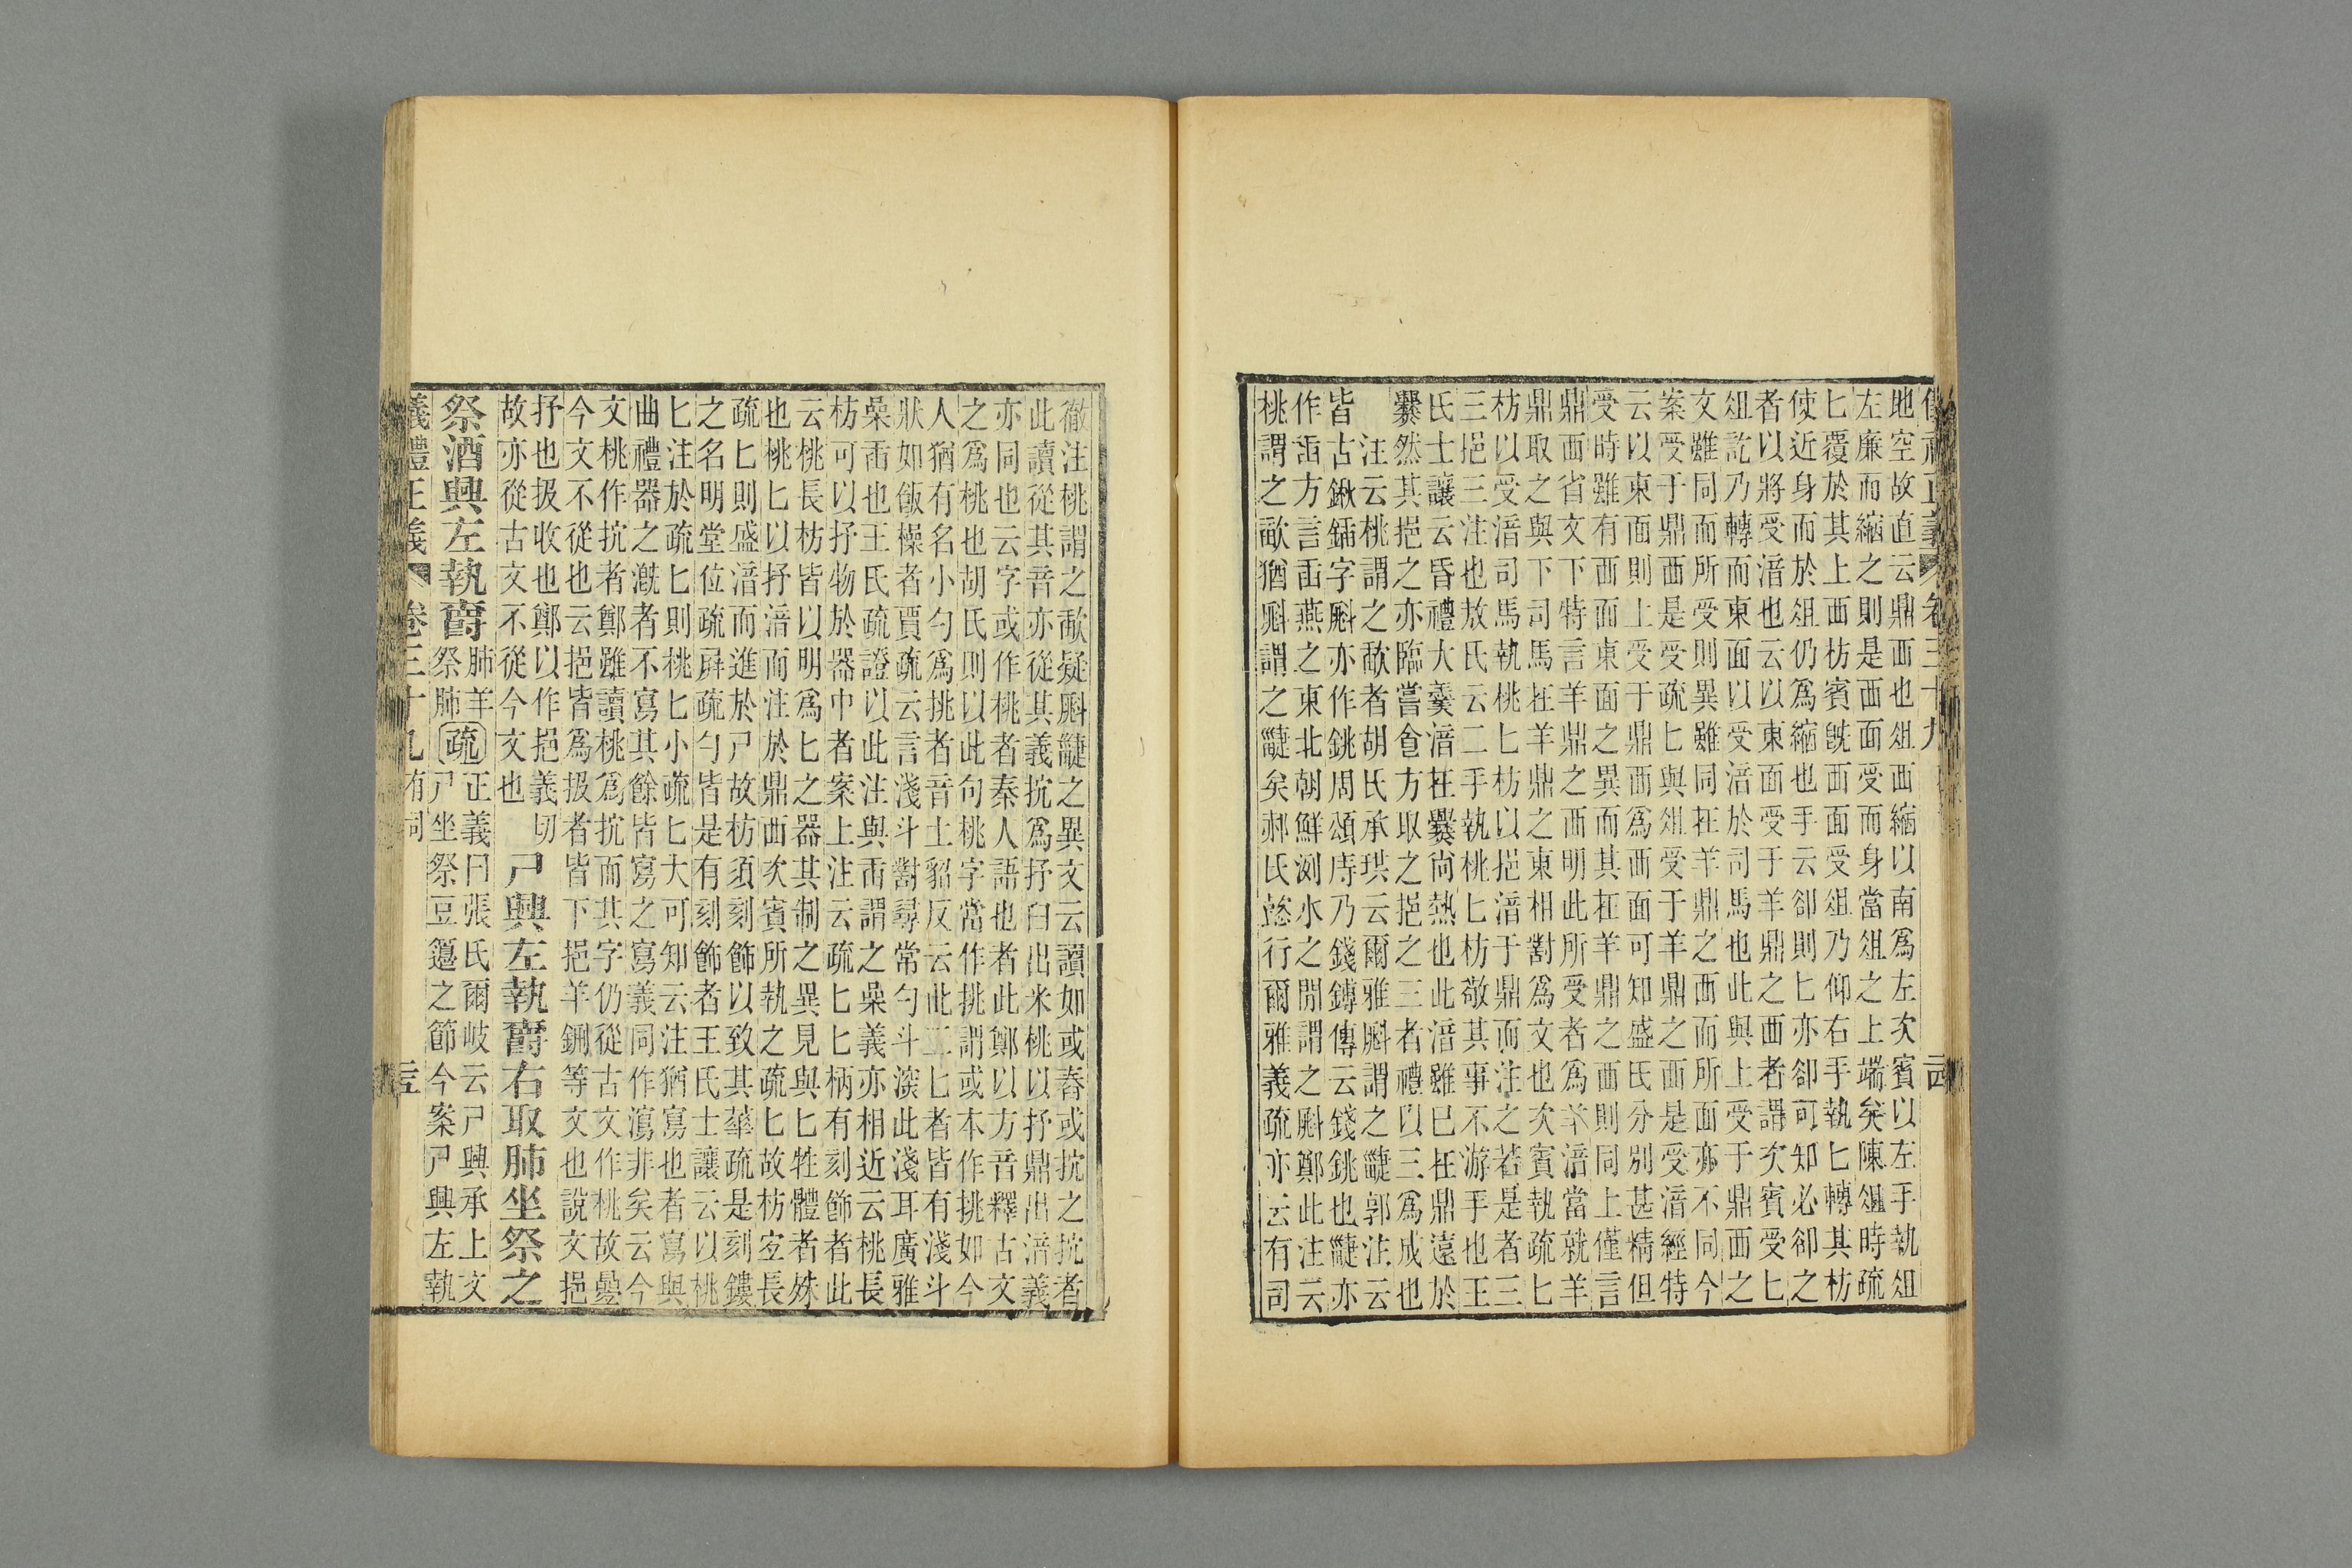 儀禮正義 卷三十九
地空故直云鼎西也俎西縮以南爲左次賓以左手執俎
左廉而縮之則是西面受而身當俎之上端矣陳俎時疏
匕覆於其上西枋賓旣西面受俎乃仰右手執匕轉其枋
使近身而於俎仍爲縮也手云卻則匕亦卻可知必卻之
者以將受湆也云以東面受于羊鼎之西者謂次賓受匕
俎訖乃轉而東面以受湆於司馬也此與上受于鼎西之
文雖同而所受則異雖同在羊鼎之西而所面亦不同今
案受于鼎西是受疏匕與俎受于羊鼎之西是受湆經特
云以東面則上受于鼎西爲西面可知盛氏分別甚精但
受時雖有西面東面之異而其在羊鼎之西則同上僅言
鼎西省文下特言羊鼎之西明此所受者爲羊湆當就羊
鼎取之與下司馬在羊鼎之東相對爲文也次賓執疏匕
枋以受湆司馬執桃匕枋以挹湆于鼎而注之若是者三
三挹三注也敖氏云二手執桃匕枋敬其事不游手也王
氏士讓云昏禮大羹湆在爨尚熱也此湆雖已在鼎遠於
爨然其挹之亦臨嘗食方取之挹之三者禮以三爲成也
注云桃謂之㪬者胡氏承珙云爾雅㪻謂之疀郭注云
皆古鍬鍤字㪻亦作銚周頌庤乃錢鎛傳云錢銚也疀亦
作臿方言臿燕之東北朝鮮洌水之閒謂之㪻鄭此注云
桃謂之㪬猶㪻謂之疀矣郝氏懿行爾雅義疏亦云有司
徹注桃謂之㪬疑㪻疀之異文云讀如或舂或抗之抗者
此讀從其音亦從其義抗爲抒臼出米桃以抒鼎出湆義
亦同也云字或作桃者秦人語也者此鄭以方音釋古文
之爲桃也胡氏則以此句桃字當作挑謂或本作挑如今
人猶有名小勺爲挑者音土貂反云此二匕者皆有淺斗
狀如飯橾者賈疏云言淺斗對尋常勺斗深此淺耳廣雅
喿臿也王氏疏證以此注與臿謂之喿義亦相近云桃長
枋可以抒物於器中者案上注云疏匕匕柄有刻飾者此
云桃長枋皆以明爲匕之器其制之異見與匕牲體者殊
也桃匕以抒湆而注於鼎西次賓所執之疏匕故枋宜長
疏匕則盛湆而進於尸故枋須刻飾以致其華疏是刻鏤
之名明堂位疏屏疏勺皆是有刻飾者王氏士讓云以桃
匕注於疏匕則桃匕小疏匕大可知云注猶寫也者寫與
曲禮器之漑者不寫其餘皆寫之寫義同作瀉非矣云今
文桃作抗者鄭雖讀桃爲抗而其字仍從古文作桃故疊
今文不從也云挹皆爲扱者皆下挹羊鉶等文也說文挹
抒也扱收也鄭以作挹義切
故亦從古文不從今文也
尸興左執爵右取肺坐祭之
祭酒興左執爵
肺羊
祭肺
疏
正義曰張氏爾岐云尸興承上文
尸坐祭豆籩之節今案尸興左執
義禮正義 卷三十九 有司